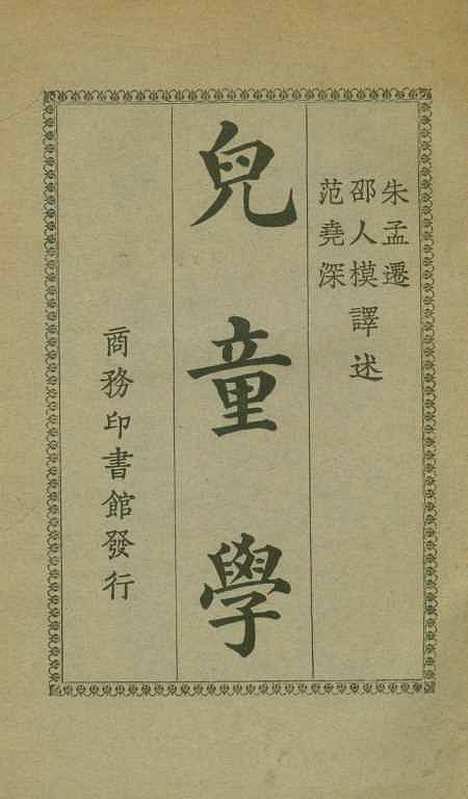 朱孟遷
邵人模譯述
范堯深
兒童學
商務印書館發行